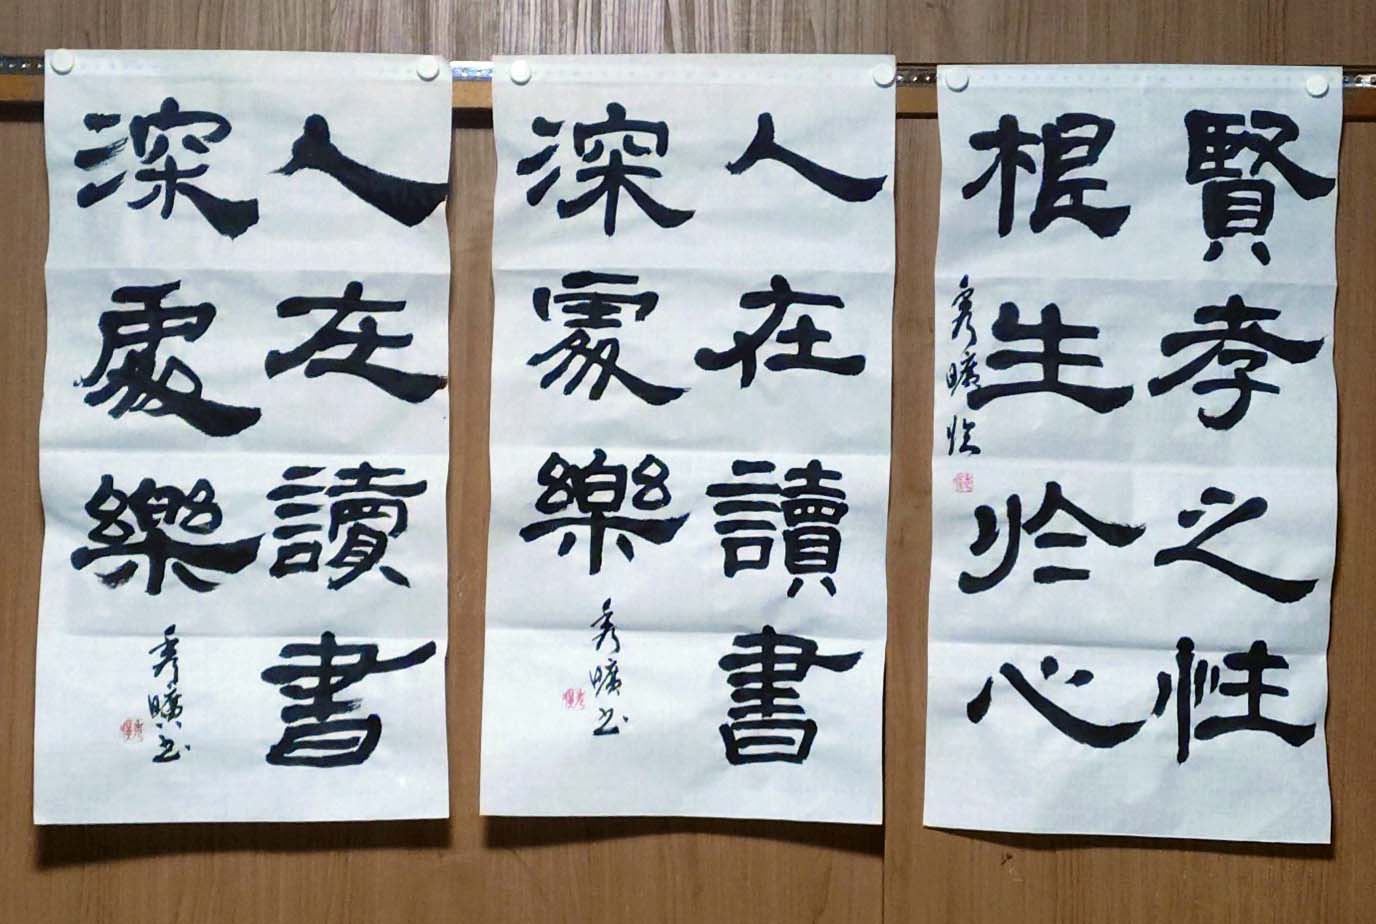 人在讀書
深處樂
秀曠书
人在讀書
深處樂
秀曠书
賢孝之性
根生於心
秀曠临